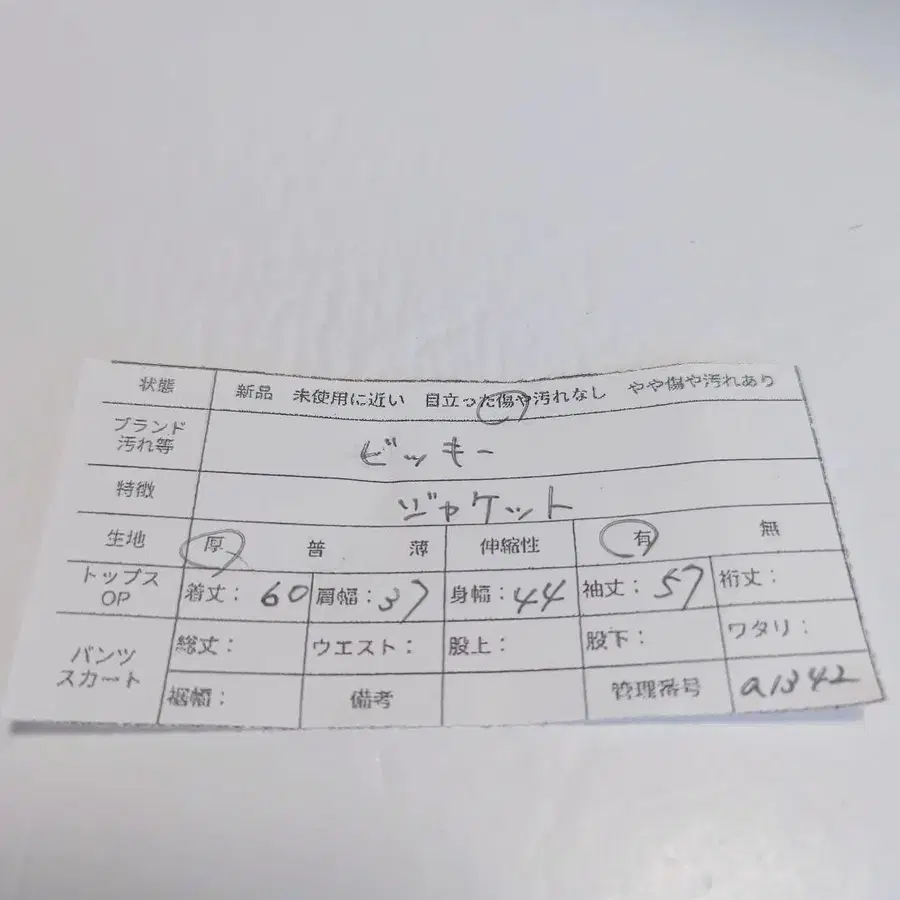 状態 新品 未使用に近い 目立った傷や汚れなし やや傷や汚れあり
ブランド
汚れ等 ビッキー
特徴 ジャケット
生地 厚 普 薄 伸縮性 有 無
トップス
OP 着丈: 60 肩幅: 37 身幅: 44 袖丈: 57 裄丈:
パンツ
スカート 総丈: ウエスト: 股上: 股下: ワタリ:
裾幅: 備考 管理番号 a1342